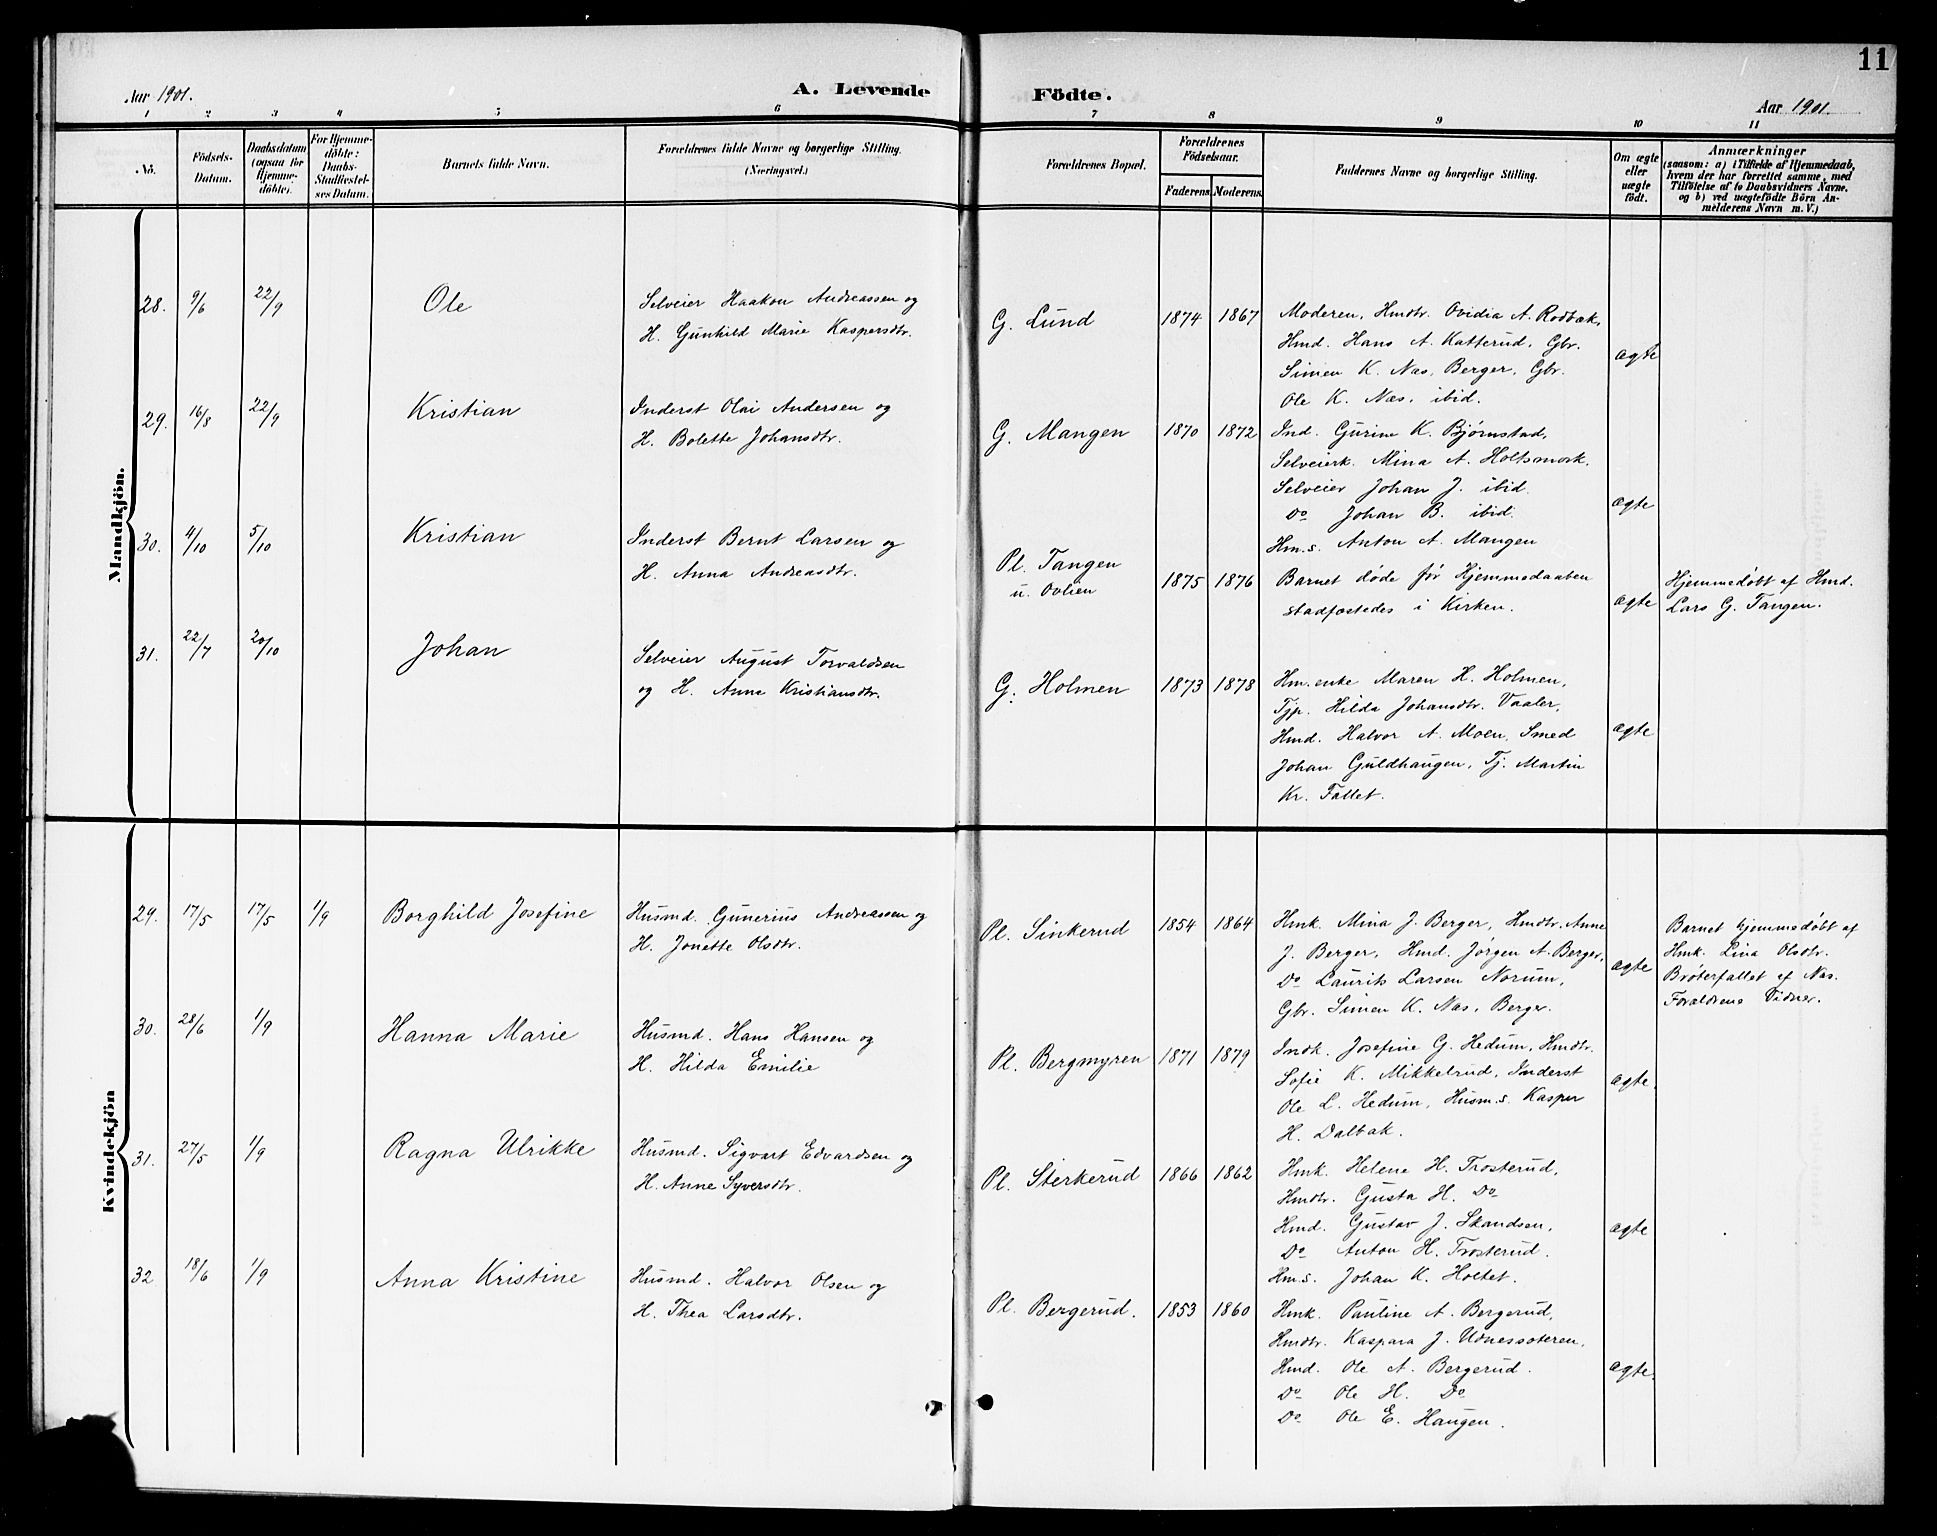 11
Aar 1901.
A. Levende
Födte.
Aar 1901.
1 2 3 4 5 6 7 8 9 10 11
No.
Födsels-
Datum.
Daabsdatum
(ogsaa for
Hjemme-
döbte).
For Hjemme-
döbte:
Daabs-
Stadfæstel-
ses Datum.
Barnets fulde Navn.
Forældrenes fulde Navne og borgerlige Stilling.
(Næringsvei.)
Forældrenes Bopæl.
Forældrenes
Födselsaar.
Faderens. Moderens.
Faddernes Navne og borgerlige Stilling.
Om ægte
eller
uægte
födt.
Anmærkninger
(saasom: a) i Tilfælde af Hjemmedaab,
hvem der har forrettet samme, med
Tilföielse af to Daabsvidners Navne,
og b) ved uægtefödte Börn An-
melderens Navn m. V.)
Mandkjön.
28. 9/6 22/9 Ole
Selveier Haakon Andreassen og
H. Gunhild Marie Kaspersdtr.
G. Lund 1874 1867
Moderen, Hmdtr. Ovidia A. Rodbæk,
Hmd. Hans A. Katterud, Gbr.
Simen K. Næs, Berger, Gbr.
Ole K. Næs, ibid.
ægte
29. 16/8 22/9 Kristian
Inderst Olai Andersen og
H. Bolette Johansdtr.
G. Mangen 1870 1872
Ind. Gurine K. Bjørnstad,
Selveierk. Mina A. Holtsmork.
Selveier Johan J. ibid.
Do Johan B. ibid.
Hm.s. Anton A. Mangen
ægte
30. 4/10 5/10 Kristian
Inderst Bernt Larsen og
H. Anna Andreasdtr.
Pl. Tangen
u. Ovlien
1875 1876
Barnet døde før Hjemmedaaben
stadfæstedes i Kirken.
ægte
Hjemmedøbt af Hmd.
Lars G. Tangen.
31. 22/7 20/10 Johan
Selveier August Torvaldsen
og H. Anne Kristiansdtr.
G. Holmen 1873 1878
Hm.enke Maren H. Holmen,
Tjp. Hilda Johansdtr. Vaaler,
Hmd. Halvor A. Moen, Smed
Johan Guldhaugen, Tj. Martin
Kr. Fallet.
ægte
Kvindekjön
29. 17/5 17/5 1/9 Borghild Josefine
Husmd. Gunerius Andreassen og
H. Jonette Olsdtr.
Pl. Sinkerud 1854 1864
Hmk. Mina J. Berger, Hmdtr. Anne
J. Berger, Hmd. Jørgen A. Berger,
Do Laurits Larsen Norum,
Gbr. Simen K. Næs, Berger.
ægte
Barnet hjemmedøbt af
Hmk. Lina Olsdtr.
Brøterfallet af Næs.
Forældrene Vidner.
30. 28/6 1/9 Hanna Marie
Husmd. Hans Hansen og
H. Hilda Emilie
Pl. Bergmyren 1871 1879
Indk. Josefine G. Hedum, Hmdtr.
Sofie K. Mikkelrud, Inderst
Ole L. Hedum, Husm.s. Kasper
H. Dalbak.
ægte.
31. 27/5 1/9 Ragna Ulrikke
Husmd. Sigvart Edvardsen og
H. Anne Syversdtr.
Pl. Sterkerud 1866 1862
Hmk. Helene H. Trosterud,
Hmdtr. Gusta H. Do
Hmd. Gustav J. Skandsen,
Do Anton H. Trosterud.
Hm.s. Johan K. Holtet.
ægte
32. 18/6 1/9 Anna Kristine
Husmd. Halvor Olsen og
H. Thea Larsdtr.
Pl. Bergerud. 1853 1860
Hmk. Pauline A. Bergerud,
Hmdtr. Kaspara J. Udnessæteren,
Hmd. Ole A. Bergerud.
Do Ole H. Do
Do Ole E. Haugen.
ægte.